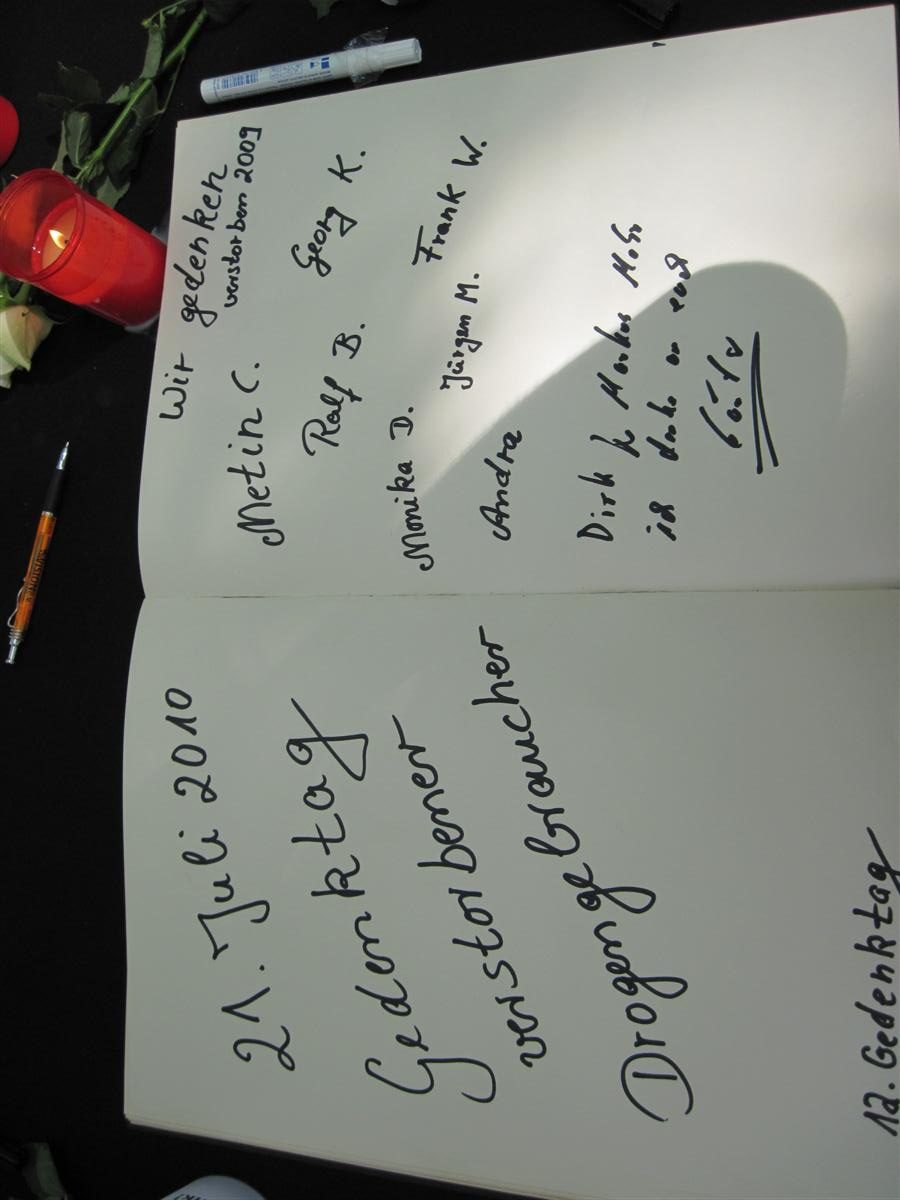 21. Juli 2010
Gedenktag
verstorbener
Drogengebraucher
12. Gedenktag
Wir gedenken
verstorben 2009
Metin C.
Ralf B. Georg K.
Monika D.
Jürgen M. Frank W.
Andra
Dirk Markus